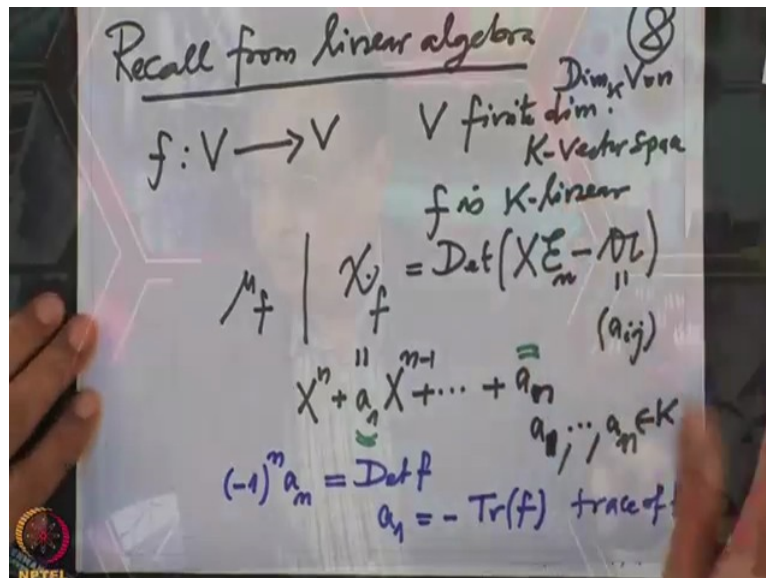 Recall from linear algebra
8
f : V → V V finite dim. Dim_K V = n
K-Vector space
f is K-linear
μ_f | χ_f = Det(X𝓔_n - 𝔄)
= (a_ij)
X^n + a_1 X^{n-1} + ⋯ + a_n
a_1, ⋯, a_n ∈ K
(-1)^n a_n = Det f
a_1 = - Tr(f) trace of
NPTEL